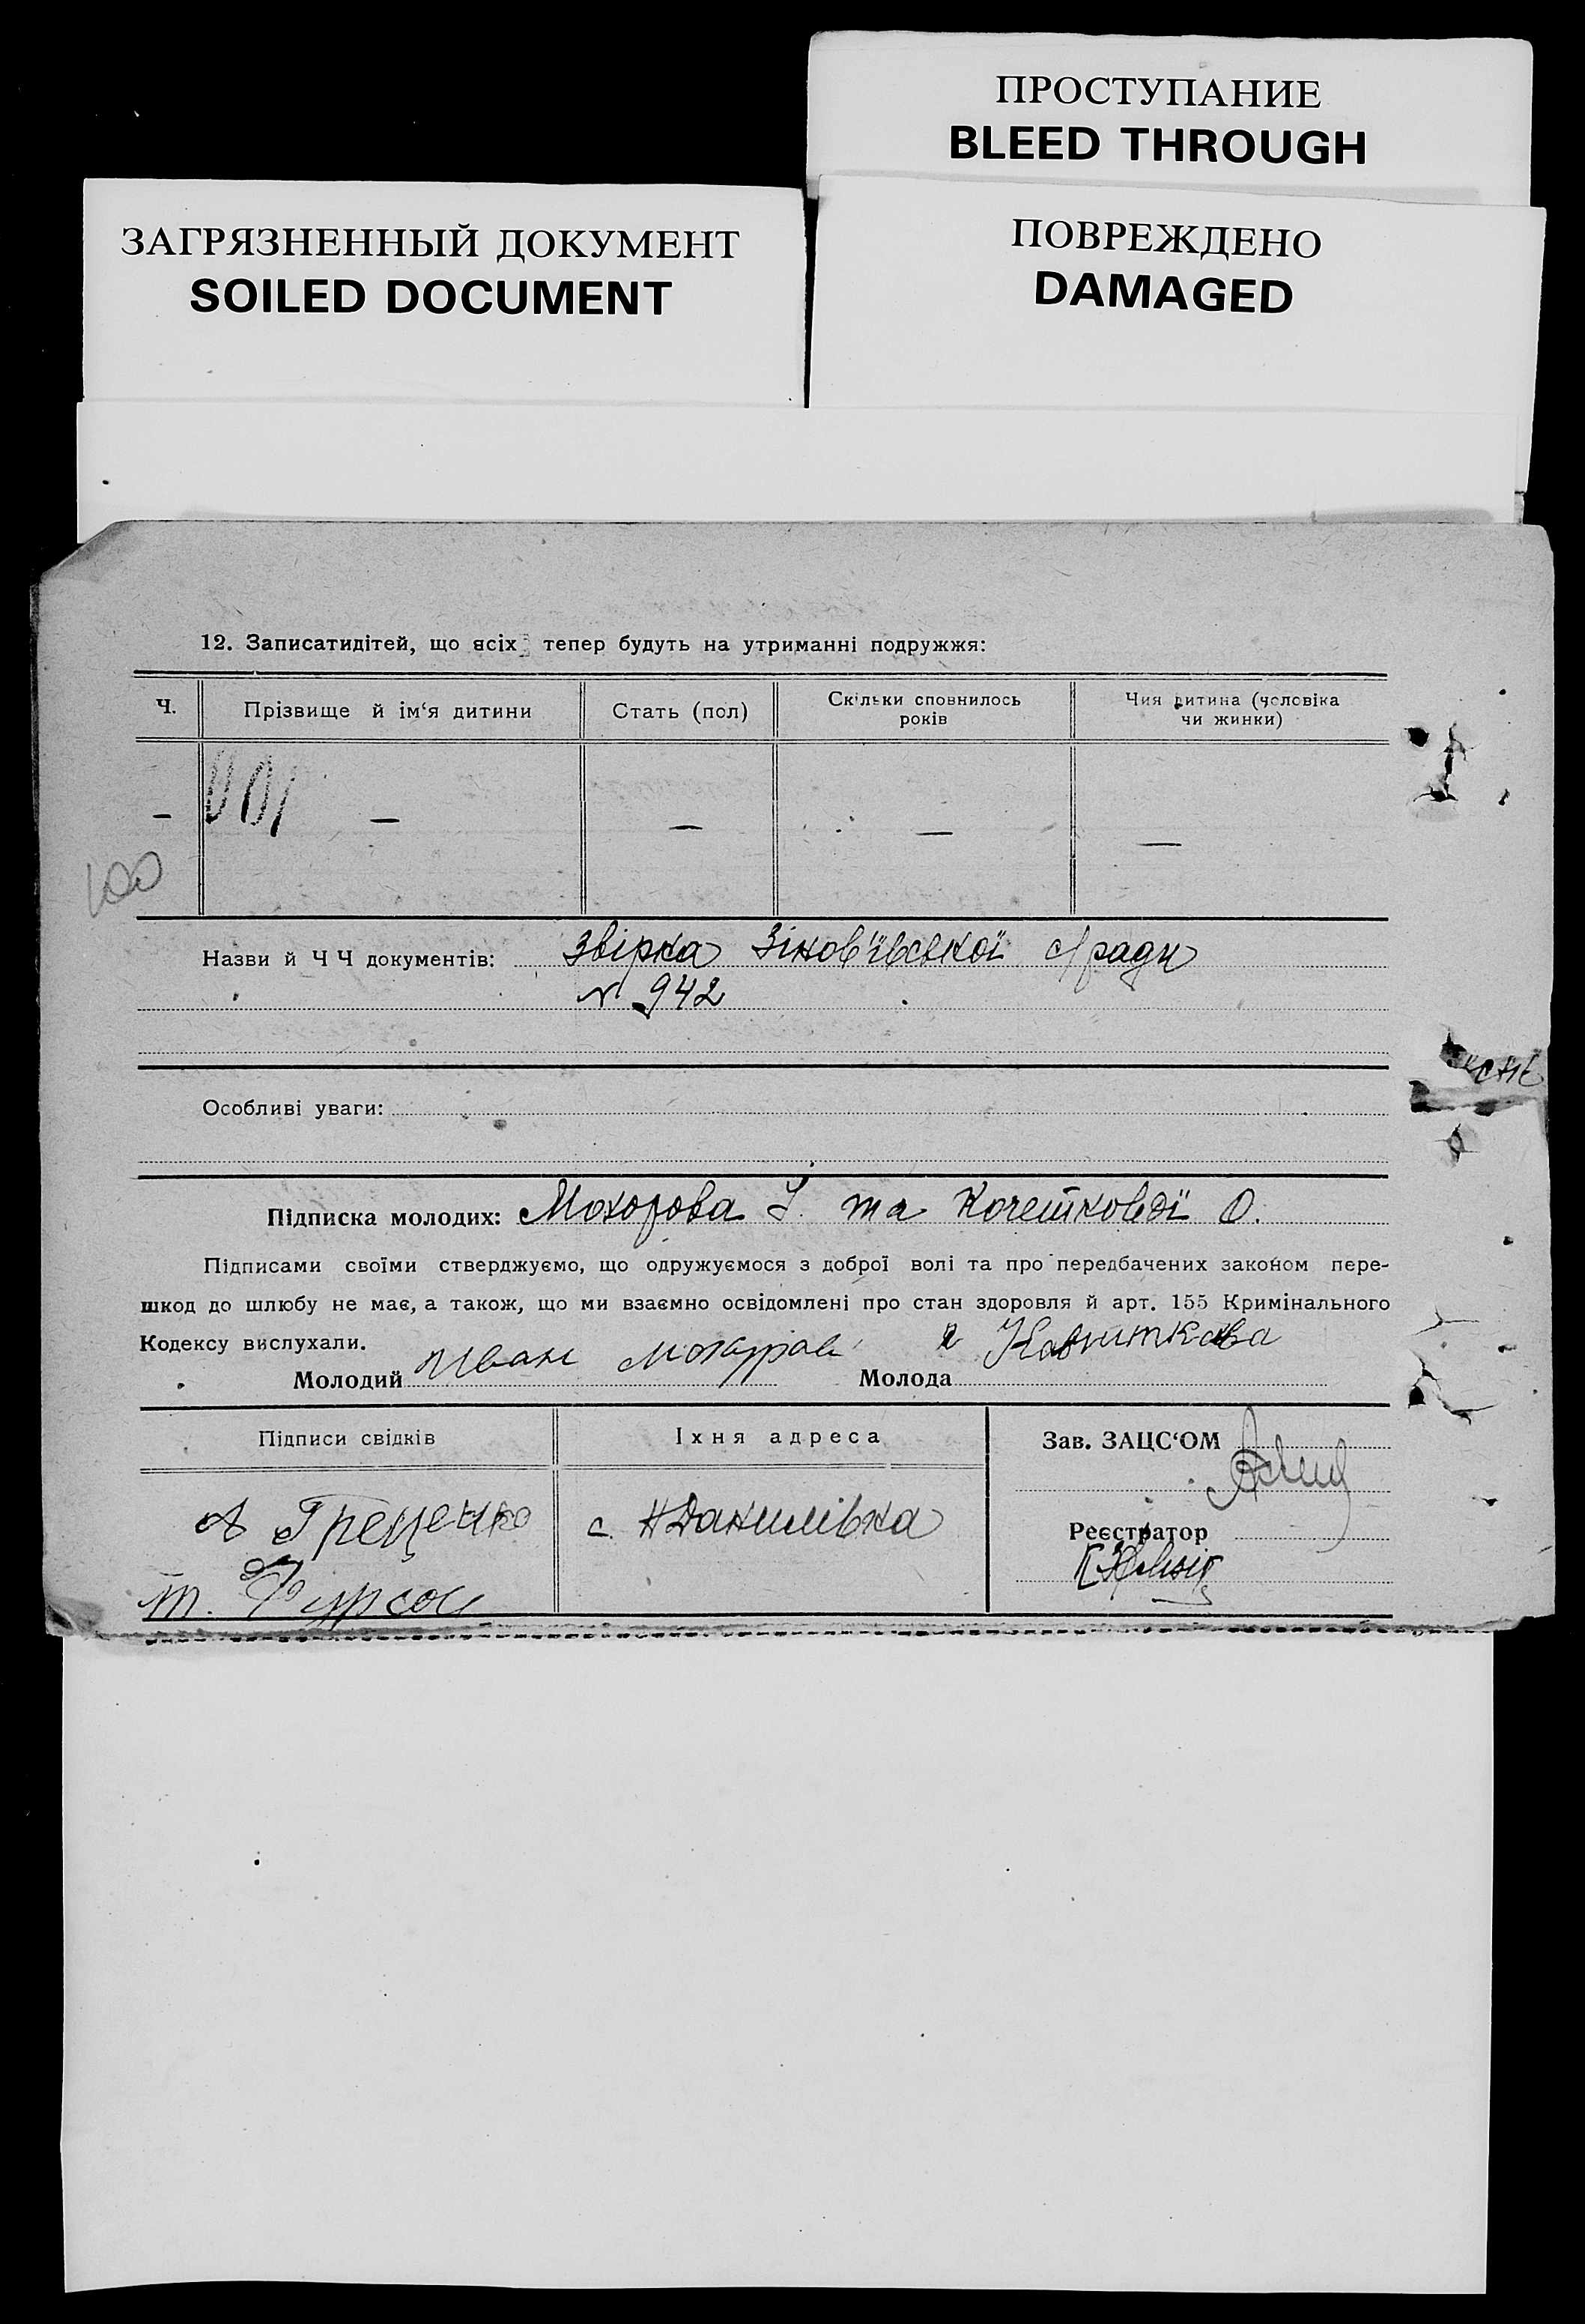 ПРОСТУПАНИЕ
BLEED THROUGH
ЗАГРЯЗНЕННЫЙ ДОКУМЕНТ
SOILED DOCUMENT
ПОВРЕЖДЕНО
DAMAGED
12. Записатидітей, що всіх тепер будуть на утриманні подружжя:
Ч. Прізвище й ім‘я дитини Стать (пол) Скільки сповнилось років Чия дитина (чоловіка чи жинки)
— — — — —
100
Назви й Ч Ч документів: Звірка Зінов'ївської с/ради
№ 942
Особливі уваги:
Підписка молодих: Мохорова І. та Кочеткової О.
Підписами своїми стверджуємо, що одружуємося з доброї волі та про передбачених законом пере-
шкод до шлюбу не має, а також, що ми взаємно освідомлені про стан здоровля й арт. 155 Кримінального
Кодексу вислухали.
Молодий Иван Молода
Підписи свідків Їхня адреса Зав. ЗАЦС‘ОМ
Грещенко с. НДанилівка
Реєстратор
т.